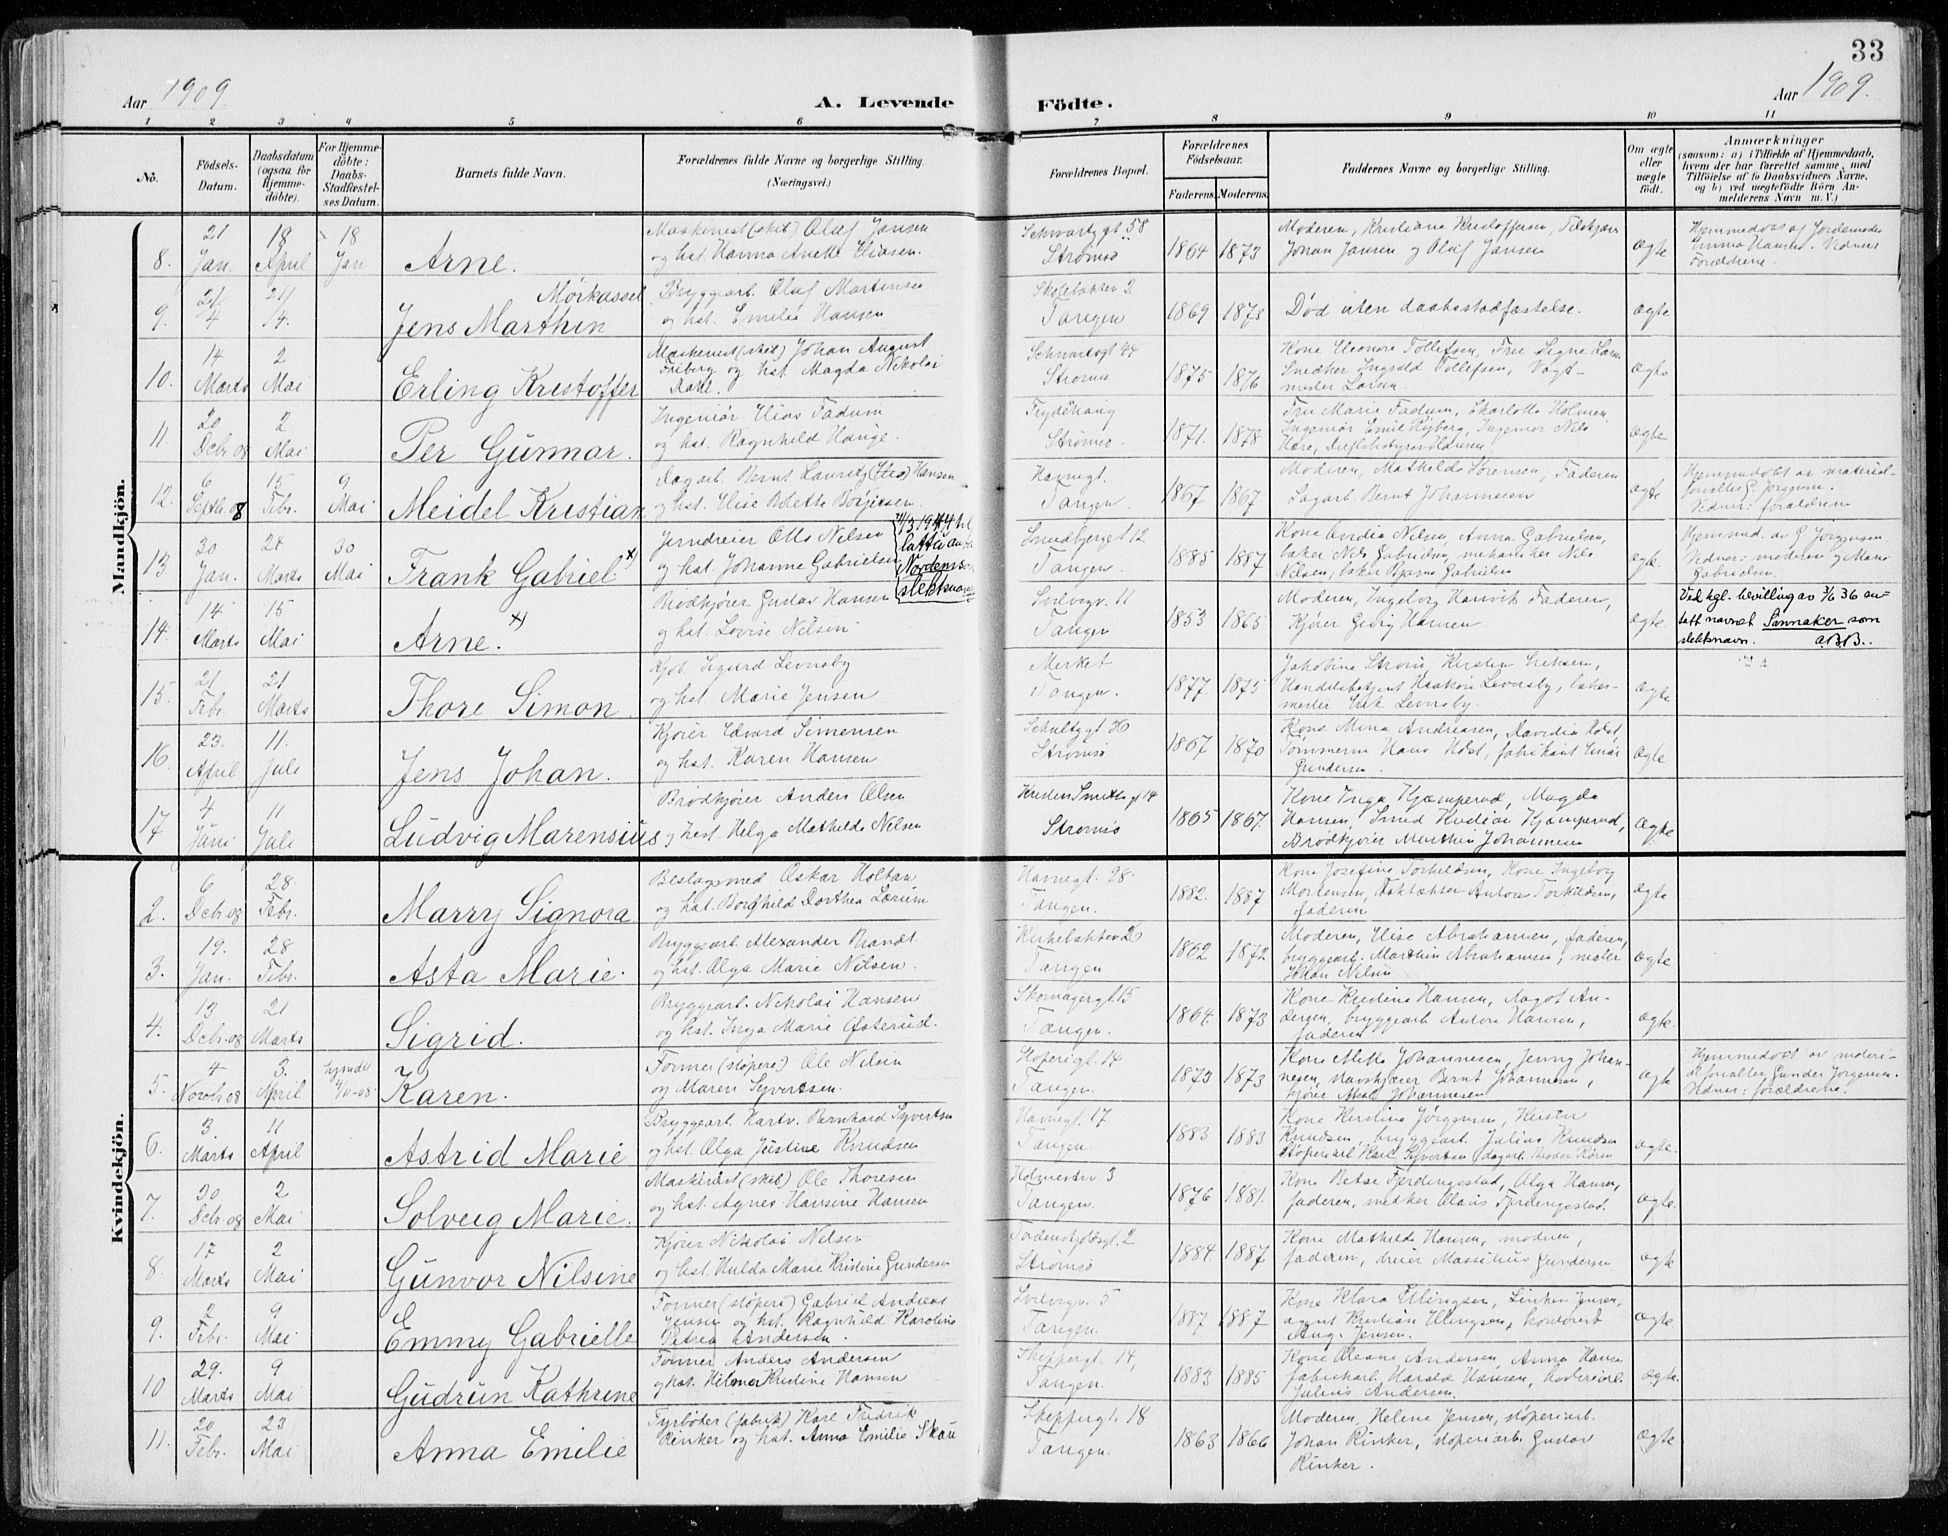 33
Aar 1909
A. Levende
Födte.
Aar 1909.
1 2 3 4 5 6 7 8 9 10 11
No.
Födsels-Datum.
Daabsdatum (ogsaa for Hjemme-döbte).
For Hjemme-döbte: Daabs-Stadfæstel-ses Datum.
Barnets fulde Navn.
Forældrenes fulde Navne og borgerlige Stilling. (Næringsvei.)
Forældrenes Bopæl.
Forældrenes Födselsaar.
Faderens. Moderens.
Faddernes Navne og borgerlige Stilling.
Om ægte eller uægte født.
Anmærkninger
(saasom: a) i Tilfælde af Hjemmedaab, hvem der har forrettet samme, med Tilföielse af to Daabsvidners Navne, og b) ved uægtefödte Börn An-melderens Navn m. V.)
Mandkjön.
8. 21 Jan. 18 April 18 Jan Arne.
Maskinist (skib) Olaf Jansen
og hst. Hanna
Strømsö 1864 1873
Moderen, Kristiane Kristoffersen,
Johan Jansen og Olaf Jansen
Ægte
Hjemmedøbt af Jordemoder
Forældrene.
9. Jens Marthin Mørkassel
Bryggearb. Olaf Martinsen
og hst. Emilie Hansen
Skolebakken 2
Tangen 1869 1873
Død uten daabsstadfæstelse.
Ægte
10. 14 Marts 2 Mai Erling Kristoffer
Maskinist (skib) Johan August
Friberg og hst. Magda Nikolai
Dahl.
Strømsö 1875 1876
Kone Eleonore Tollefsen, Fru Signe
Snedker Ingvald Tollefsen,
Ægte
11 20 Decbr 08 2 Mai Per Gunnar.
Ingeniör Elias Fadum
og hst. Ragnhild Hauge.
Frydenhaug
Strømsö. 1871. 1878
Fru Marie Fadum, Charlotte Holmsen
Ægte
12. 6 Septbr 08 15 Febr. 9 Mai Meidel Kristian
Dagarb. Bernt Lauritz Hansen
og hst. Elise Bolette
Havnegt.
Tangen 1867 1867
Moderen, Mathilde Sørensen, Faderen
Dagarb. Bernt Johannesen
ægte
Hjemmedøbt av material-
forvalter G. Jörgensen.
Vidner: forældrene
13 30 Jan. 28 Marts 30 Mai Frank Gabriel x)
Jerndreier Otto Nilsen
og hst. Johanne Gabrielsen
Nordem
slektsnavn
Smedbjerget 12
Tangen. 1885 1887
Kone Andia Nilsen, Anna Gabrielsen,
baker Nils Gabrielsen, mekaniker Nils
Nilsen, baker Bjarne Gabrielsen
ægte.
Hjemmed. av G Jörgensen
Vidner: moderen og Marie
Gabrielsen.
14. 14 Marts 15 Mai Arne. x)
Brødkjører Gustav Hansen
og hst. Lovise Nilsen
Tangen 1853 1865
Moderen, Ingeborg Faderen,
Kjører Georg Hansen
ægte.
Ved kgl. bevilling av 3/6 36 an-
tatt navnet Sannaker som
slektsnavn. O.B.B.
15. 21 Febr. 21 Marts Thore Simon
Kjøb. Sigurd Levnsby
og hst. Marie Jensen
Merket
Tangen. 1877 1875
Jakobine Strøm, Kirsten Eriksen,
Handelsbetjent Haakon Levnsby, baker-
mester Erik Levnsby.
ægte
16. 23. April 11. Juli Jens Johan.
Kjører Edvard Simensen
og hst. Karen Hansen
Schultzgt 26
Strømsö 1867 1870
Kone Mina Andreasen, Davidia Holst,
Tömmerm Hans Holst, fabrikant Einar
Gundersen.
ægte
17 4 Juni 11 Juli Ludvig Marensius
Brødkjører Anders Olsen
og hst. Helga Mathilde Nilsen
Kristen Smeds gt 14
Strømsö 1865 1867.
Kone Inga Kjæmperud, Magda
Hansen, Smed Kristian Kjæmperud,
Brødkjører Marthin Johannesen
Ægte
Kvindekjön.
2. 6 Decbr 08 28. Febr. Marry Signora
Beslagsmed Oskar Holtan
og hst. Borghild Dorthea Lærum
Havnegt. 98.
Tangen. 1882. 1887
Kone Josefine Torkildsen, Kone Ingeborg
Mortensen, Anton Torkildsen,
faderen
Ægte
3. 19. Jan. 28 Febr. Asta Marie.
Bryggearb. Alexander Brandt
og hst. Olga Marie Nilsen.
Kirkebakken 26
Tangen 1862 1872
Moderen, Elise Abrahamsen, faderen,
bryggearb. Marthin Abrahamsen, møller
Johan Nilsen
Ægte
4. 13 Decbr 08 21 Marts Sigrid.
Bryggearb. Nikolai Hansen
og hst. Inga Marie Østerud.
Skomagergt. 15
Tangen. 1864. 1873
Kone Kristine Hansen, Aagot An-
dersen, bryggearb Anton Hansen,
faderen
ægte.
5. 4 Novbr 08 3. April hjmdøbt Karen.
Former (støperi) Ole Nilsen
og Maren Syvertsen.
Støperigt. 14
Tangen. 1873 1873
Kone Mette Johannesen, Jenny Johan-
nesen, Bernt Johannesen,
kjører Aksel Johannesen
ægte
Hjemmedøbt av materi-
al forvalter Gunder Jörgensen.
Vidner: forældrene.
6. 3 Marts 11 April Astrid Marie
Bryggearb. Hartv. Bernhard Syvertsen
og hst. Olga Justine Knudsen
Havnegt. 17
Tangen 1883 1883
Kone Kirstine Jørgensen, Kirstine
Knudsen, bryggearb. Julius Knudsen
støperiarb Karl Syvertsen, dagarb. Theodor Køren
ægte.
7. 30 Decbr. 08 2 Mai Solveig Marie.
Maskinist (skib) Ole Thoresen
og hst. Agnes Hansine Hansen
3
Tangen. 1876 1881.
Kone Betsie Fjerdingstad, Olga Hansen,
faderen, Olaus Fjerdingstad.
ægte.
8. 17 Marts 2 Mai Gunvor Nilsine
Kjører Nikolai Nilsen
og hst. Hulda Marie Kristine Gundersen
2
Strömsö 1884. 1887
Kone Mathilde Hansen, moderen,
faderen, dreier Massilius Gundersen
ægte
9. 2 Febr. 9 Mai Emmy Gabrielle
Former (støperi) Gabriel Andreas
Jensen og hst. Ragnhild Karoline
Petrea Andersen.
5
Tangen. 1887 1887
Kone Klara Ellingsen, Jensen,
agent Kristian Ellingsen, kontorist
Aug. Jensen.
ægte
10 29. Marts 9 Mai Gudrun Kathrine
Former Anders Andersen
og hst. Helmer Kristine Hansen
Skippergt. 14,
Tangen. 1883 1885
Kone Oleane Andersen, Anna Hansen
fabrikarb. Harald Hansen,
Julius Andersen.
ægte.
11. 20 Febr. 23 Mai Anna Emilie
Fyrbøter (fabrik) Karl Fredrik
Rinker og hst. Anna Emilie Skau
Skippergt. 18
Tangen. 1863 1866
Moderen, Helene Jensen, støperiarb.
Johan Rinker, støperiarb. Gustav
Rinker.
Ægte